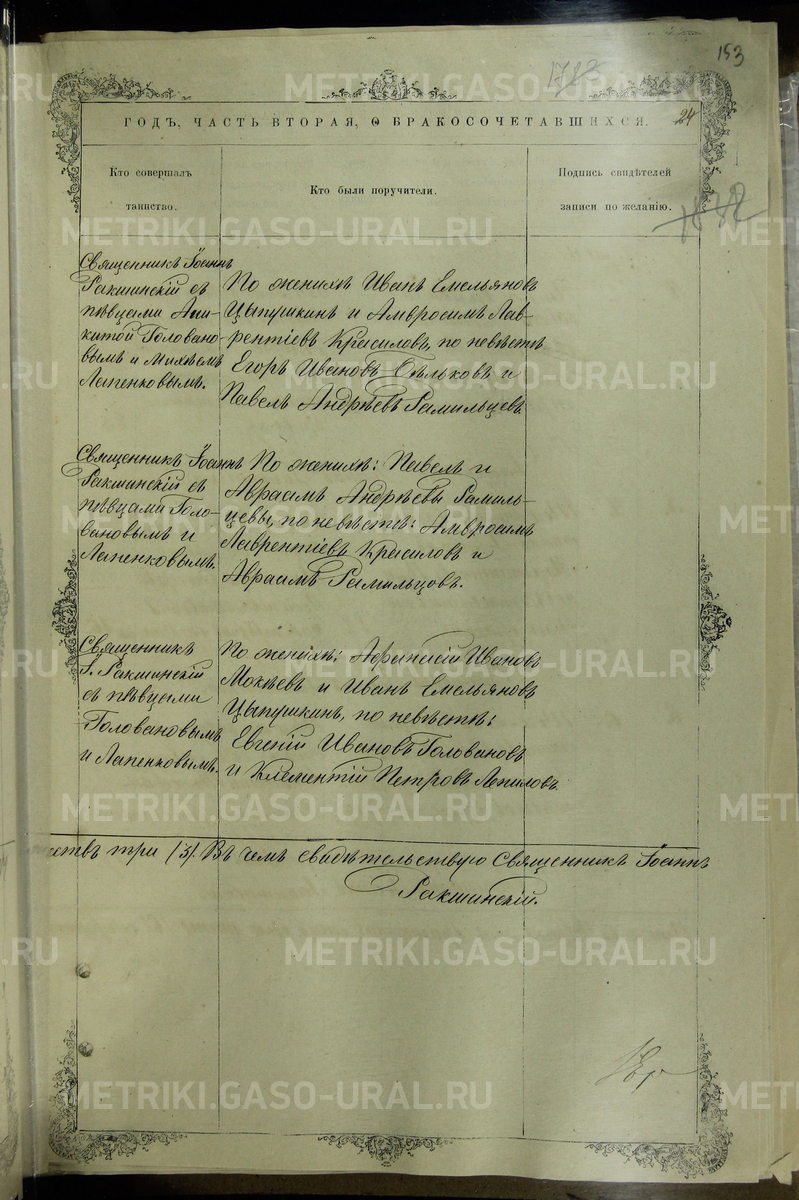 153
24
ГОДЪ, ЧАСТЬ ВТОРАЯ, О БРАКОСОЧЕТАВШИХСЯ.
Кто совершалъ
таинство.
Кто были поручители.
Подпись свидѣтелей
записи по желанію.
Священникъ Іоаннъ
Ракшинскій съ
пѣвцами Ани-
китой Головано-
вымъ и Михѣемъ
Лапенковымъ.
По женихѣ Иванъ Емельяновъ
Цыпушкинъ и Амвросимъ Лав-
рентіевъ Красиловъ, по невѣстѣ
Егоръ Ивановъ и
Павелъ Андрѣевъ Рамильцевъ
Священникъ Іоаннъ
Ракшинскій съ
пѣвцами Голо-
вановымъ и
Лапенковымъ.
По женихѣ: Павелъ и
Авраамъ Андрѣевы Рамиль-
цевы, по невѣстѣ: Амвросимъ
Лаврентіевъ Красиловъ и
Авраамъ Рамильцовъ.
Священникъ
І. Ракшинскій
съ пѣвцами
Головановымъ
и Лапенковымъ.
По женихѣ: Афанасій Ивановъ
Мокѣевъ и Иванъ Емельяновъ
Цыпушкинъ, по невѣстѣ:
Евгеній Ивановъ Головановъ
и Климентій Петровъ Лепиловъ.
три /3/. Въ чемъ свидѣтельствую Священникъ Іоаннъ
Ракшинскій.
METRIKI.GASO-URAL.RU